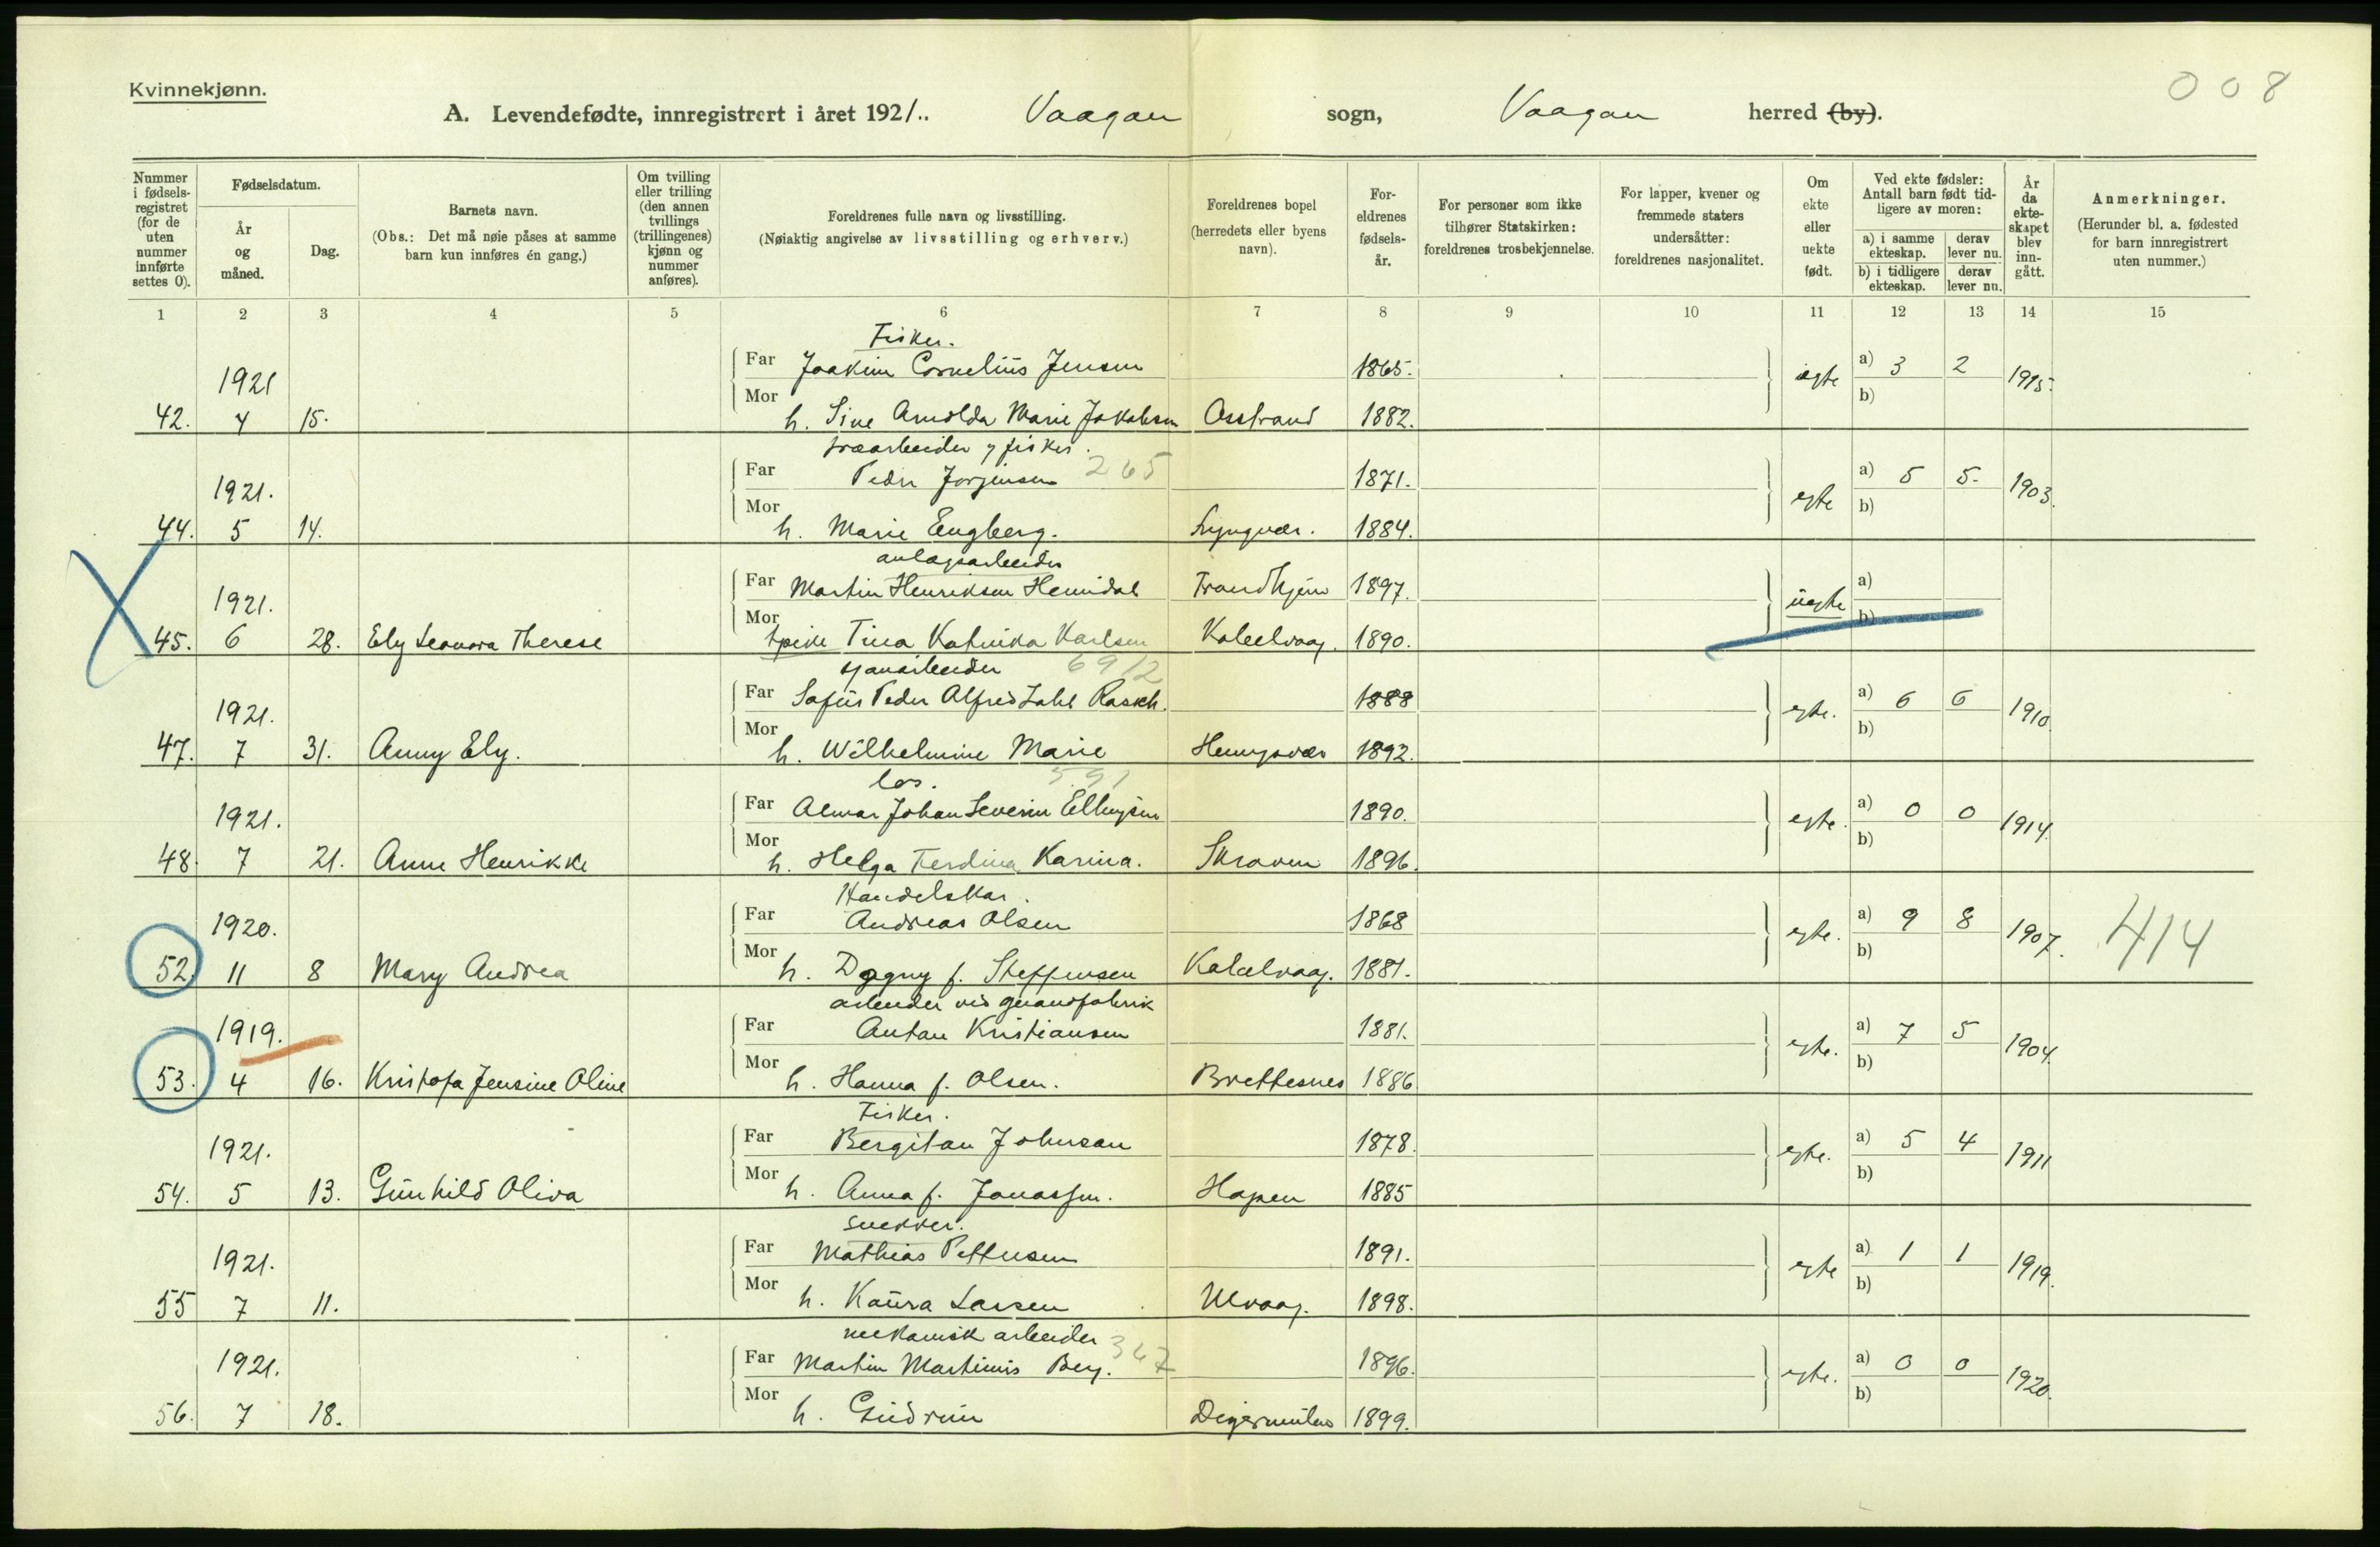 Kvinnekjønn.
008
A. Levendefødte, innregistrert i året 1921.. Vaagan sogn, Vaagan herred (by).
Nummer i fødsels-registret (for de uten nummer innførte settes 0).
Fødselsdatum.
År og måned.
Dag.
Barnets navn.
(Obs.: Det må nøie påses at samme barn kun innføres én gang.)
Om tvilling eller trilling (den annen tvillings (trillingenes) kjønn og nummer anføres).
Foreldrenes fulle navn og livsstilling.
(Nøiaktig angivelse av livsstilling og erhverv.)
Foreldrenes bopel (herredets eller byens navn).
For-eldrenes fødsels-år.
For personer som ikke tilhører Statskirken: foreldrenes trosbekjennelse.
For lapper, kvener og fremmede staters undersåtter: foreldrenes nasjonalitet.
Om ekte eller uekte født.
Ved ekte fødsler: Antall barn født tid-ligere av moren:
a) i samme ekteskap.
derav lever nu.
b) i tidligere ekteskap.
derav lever nu.
År da ekte-skapet blev inn-gått.
Anmerkninger.
(Herunder bl. a. fødested for barn innregistrert uten nummer.)
1 2 3 4 5 6 7 8 9 10 11 12 13 14 15
Fisker.
1921 Far Joakim Cornelius Jensen 1865. egte a) 3 2 1915.
42. 4 15. Mor h. Sine Arnolda Marie Jakobsen Osstrand 1882. b)
træarbeider og fisker.
1921. Far Peder Jørgensen 265 1871. egte a) 5 5. 1903.
44. 5 14. Mor h. Marie Engberg. Lyngvær. 1884. b)
anlægsarbeider
1921. Far Martin Henriksen Hemidal Trondhjem 1897. uegte a)
45. 6 28. Ely Leonora Therese Mor Tina Katinka Karlsen Kabelvaag. 1890. b)
6912
1921. Far Sofus Peder Alfred Zahl Rasch. 1888 egte. a) 6 6 1910.
47. 7 31. Anny Ely. Mor h. Wilhelmine Marie Henningsvær 1892. b)
los. 591
1921. Far Almar Johan Severin Ellingsen 1890. egte. a) 0 0 1914.
48. 7 21. Anne Henrikke Mor h. Helga Ferdina Karina. Skroven 1896. b)
Handelskar.
1920. Far Andreas Olsen 1868 egte. a) 9 8 1907. 414
52. 11 8 Mary Andrea Mor h. Dagny f. Steffensen Kabelvaag. 1881. b)
arbeider ved guanofabrik
1919. Far Anton Kristiansen 1881. egte. a) 7 5 1904.
53. 4 16. Kristofa Jensine Oline Mor h. Hanna f. Olsen. Brettesnes 1886 b)
Fisker.
1921. Far Bergitan Johnsen 1878. egte. a) 5 4 1911
54. 5 13. Gunhild Oliva Mor h. Anna f. Jonassen. Hopen 1885 b)
snekker.
1921. Far Mathias Pettersen 1891. egte a) 1 1 1919.
55 7 11. Mor h. Kaura Larsen Ulvaag. 1898. b)
mekanisk arbeider
1921. Far Martin Martinius Berg. 347 1896. egte. a) 0 0 1920.
56. 7 18. Mor h. Gudrun Digermulen 1899. b)